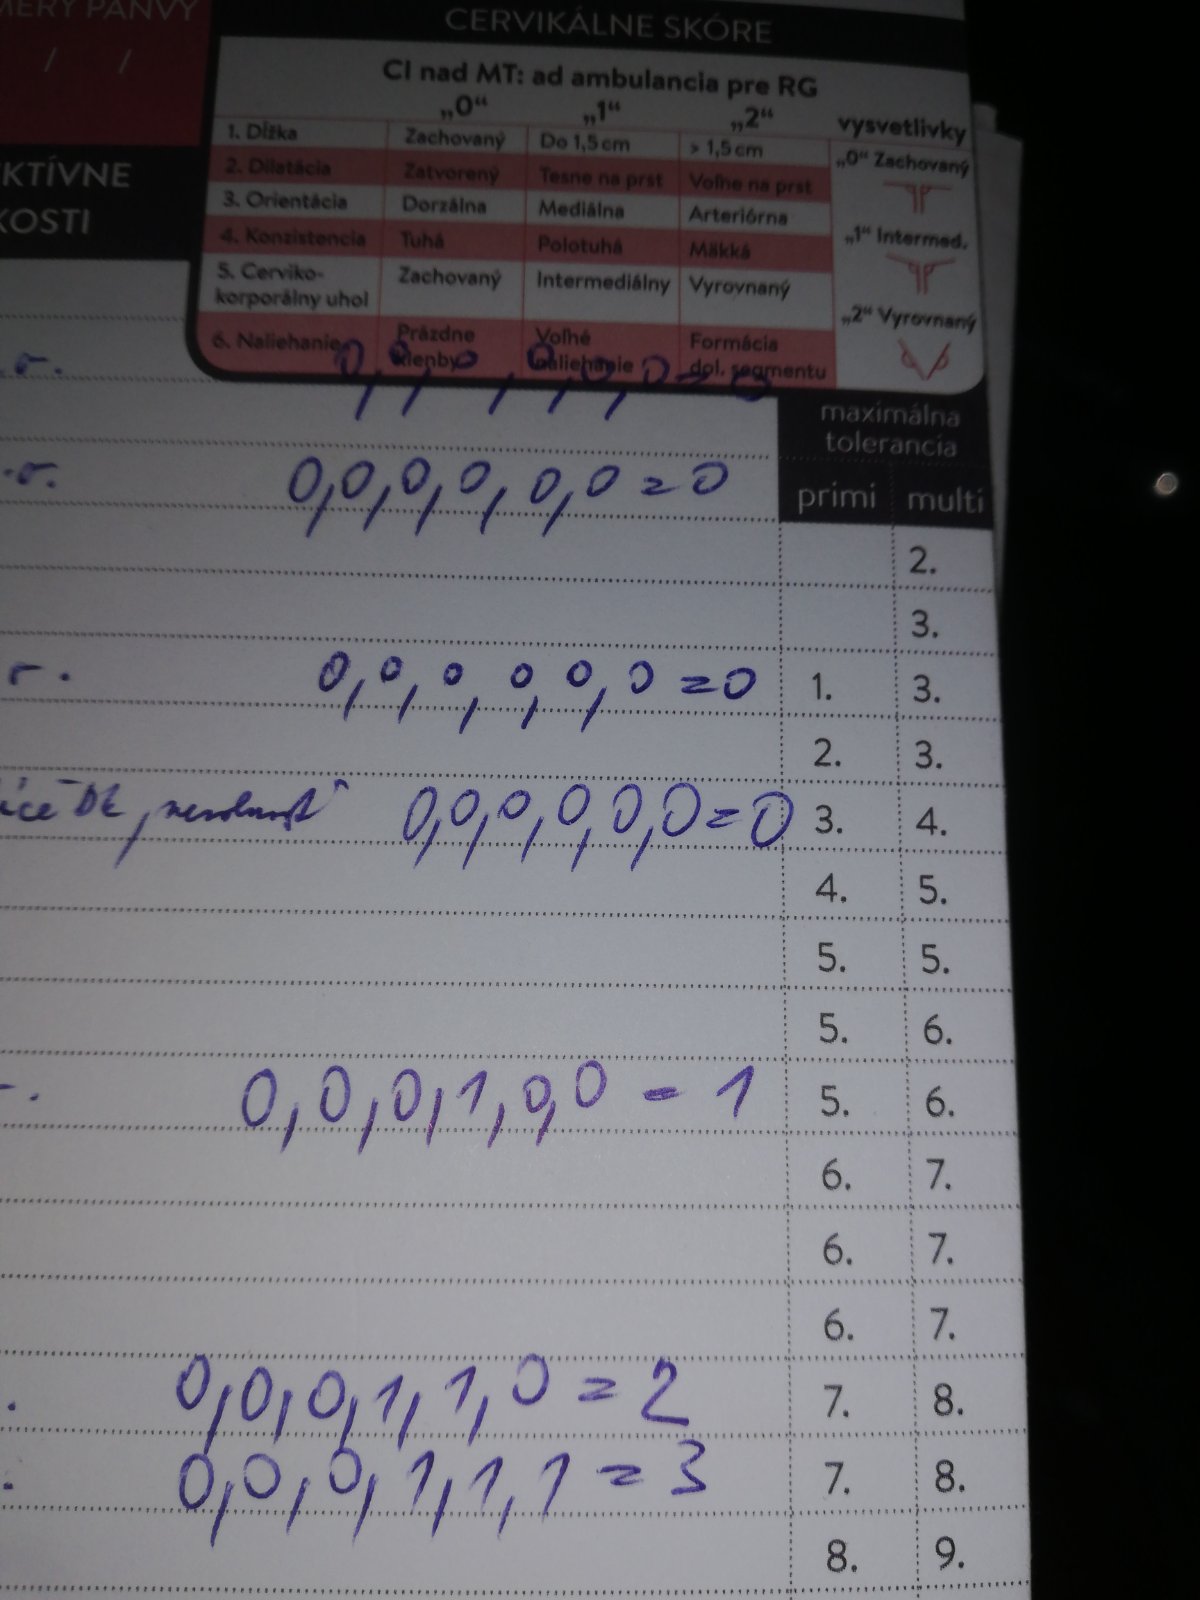 MERY PANVY
/ /
KTÍVNE
KOSTI
CERVIKÁLNE SKÓRE
CI nad MT: ad ambulancia pre RG
„0“ „1“ „2“ vysvetlivky
1. Dĺžka Zachovaný Do 1,5 cm > 1,5 cm
2. Dilatácia Zatvorený Tesne na prst Voľne na prst
3. Orientácia Dorzálna Mediálna Arteriórna
4. Konzistencia Tuhá Polotuhá Mäkká
5. Cerviko-
korporálny uhol Zachovaný Intermediálny Vyrovnaný
6. Naliehanie Prázdne klenby Voľné naliehanie Formácia dol. segmentu
„0“ Zachovaný
„1“ Intermed.
„2“ Vyrovnaný
0, 0, 0, 0, 0, 0 = 0
maximálna
tolerancia
primi multi
0,0,0,0,0,0 = 0
2.
3.
0,0,0,0,0,0 = 0 1. 3.
2. 3.
DK, 0,0,0,0,0,0 = 0 3. 4.
4. 5.
5. 5.
5. 6.
0,0,0,1,0,0 = 1 5. 6.
6. 7.
6. 7.
6. 7.
0,0,0,1,1,0 = 2 7. 8.
0,0,0,1,1,1 = 3 7. 8.
8. 9.